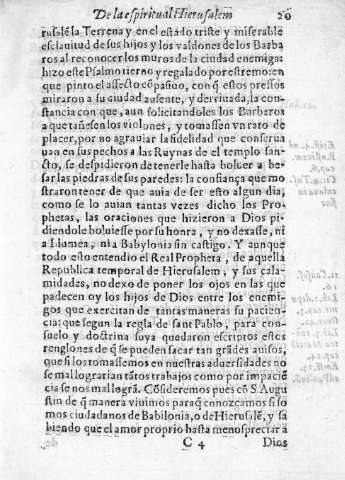 De la espiritual Hierusalem 20
rusalé la Terrena y en el estado triste y miserable
esclauitud de sus hijos y los valdones de los Barba
ros al reconocer los muros de la ciudad enemiga:
hizo este Psalmo tierno y regalado por estremo: en
que pinto el afecto cõpasiuo, con q̃ estos presos
miraron a su ciudad ausente, y derriuada, la con-
stancia con que, aun solicitandoles los Barberos
a que tañesen los violones, y tomassen vn rato de
placer, por no agrauiar la fidelidad que conserua
uan en sus pechos a las Ruynas de el templo san-
cto, se despidieron de tenerle hasta boluer a be-
sar las piedras de sus paredes: la confiança que mo
straron tener de que auia de ser esto algun dia,
como se lo auian tantas vezes dicho los Pro-
phetas, las oraciones que hizieron a Dios pi-
diendole boluiesse por su honra, y no dexasse, ni
a Idumea, ni a Babylonia sin castigo. Y aunque
todo esto entendio el Real Propheta, de aquella
Republica temporal de Hierusalem, y sus cala-
midades, no dexo de poner los ojos en las que
padecen oy los hijos de Dios entre los enemi-
gos que exercitan de tantas maneras su pacien-
cia: que segun la regla de sant Pablo, para con-
suelo y doctrina suya quedaron escriptos estos
renglones de q̃ se pueden sacar tan grãdes auisos,
que si los tomassemos en nuestras aduersidades no
se mallograrian tãtos trabajos como por impaciẽ
cia se nos mallogrã. Cõsideremos pues cõ S. Augu
stin de q̃ manera viuimos paraq̃ conozcamos si so
mos ciudadanos de Babilonia, o de Hierusalẽ, y sa
biendo que el amor proprio hasta menospreciar a
C 4 Dios